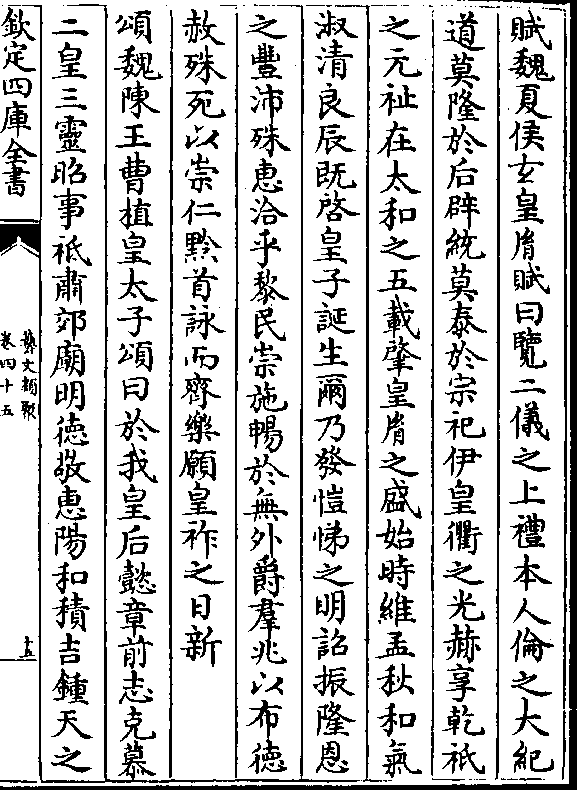 賦魏夏侯玄皇胤賦曰覽二儀之上禮本人倫之大紀
道莫隆於后辟統莫泰於宗祀伊皇衢之光赫享乾祇
之元祉在太和之五載肇皇胤之盛始時維孟秋和氣
淑清良辰既啓皇子誕生爾乃發愷悌之明詔振隆恩
之豐沛殊惠洽乎黎民崇施暢於無外爵羣兆以布德
赦殊死以崇仁黔首詠而齊樂願皇祚之日新
頌魏陳王曹植皇太子頌曰於我皇后懿章前志克慕
二皇三靈昭事祗肅郊廟明德敬惠陽和積吉鍾天之
欽定四庫全書
藝文類聚
卷四十五
十五